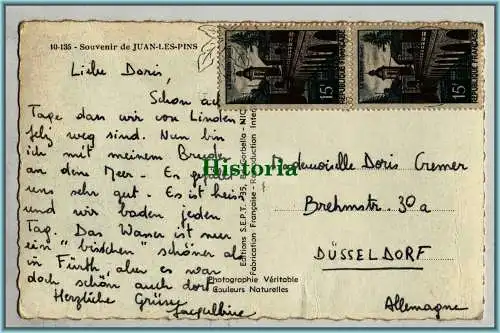 10-135 - Souvenir de JUAN-LES-PINS
Liebe Doris,
Schon acht
Tage dan wir von Linden
fels weg sind. Nun bin
ich mit meinem Bruder
an dem Meer - Es gefällt
uns sehr gut. Es ist heiss
und wir baden jeden
Tag. Das Wasser ist nur
ein "bisschen" schöner als
in Fürth aber es war
doch schön auch dort.
Herzliche Grüsse
Jacqueline
Editions S.E.P.T. - 35, Gorbella - NIC
Fabrication Française - Reproduction Inter
Photographie Véritable
Couleurs Naturelles
15F
REPUBLIQUE FRANÇAISE
15F
REPUBLIQUE FRANÇAISE
Mademoiselle Doris Cremer
Brehmstr. 30a
DÜSSELDORF
Allemagne
Historia